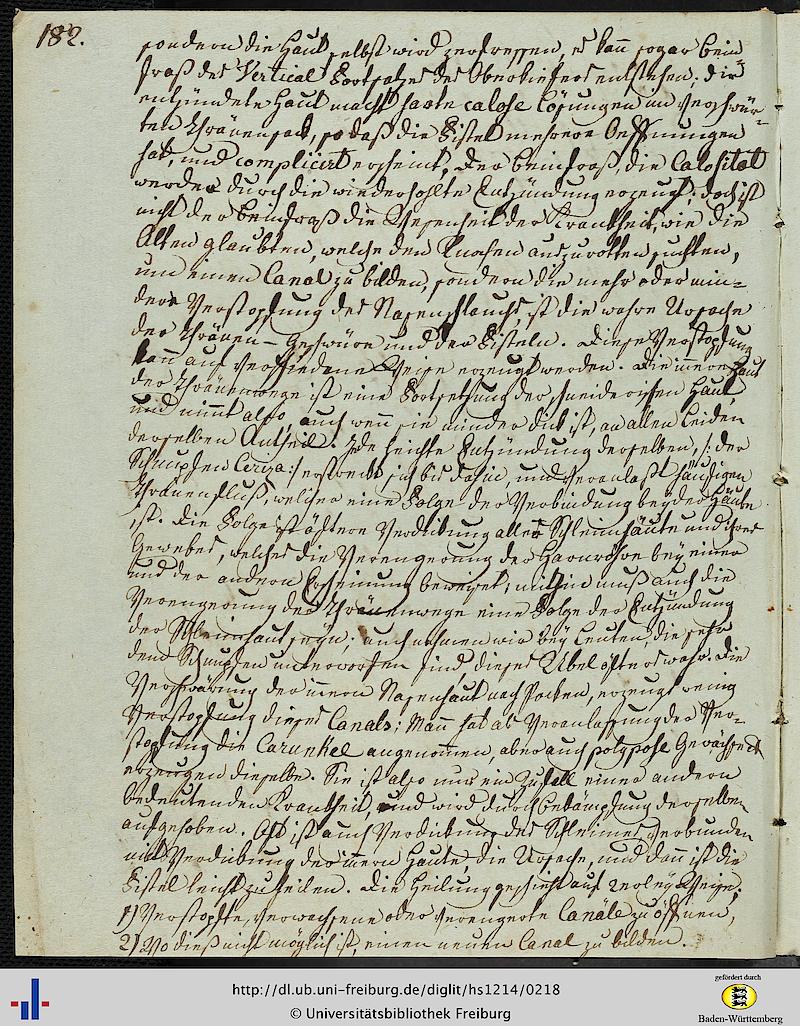 182.
sondern die Haut selbst wird zerfressen, es kan̄ sogar Bein
fraß des Vertical Fortsatzes des Oberkiefers entstehen; die
entzündete Haut macht harte calose Lösungen im verschwür-
ten Thränensack, so daß die Fistel mehrere Oeffnungen
hat, und complicirt erscheint. Der Beinfraß, die Calosität
werden durch die wiederhohlte Entzündung erzeugt; doch ist
nicht der Beinfraß die Wesenheit der Krankheit, wie die
Alten glaubten, welche den Knochen auszurotten suchten,
um einen Canal zu bilden, sondern die mehr oder min-
dere Verstopfung des Nasenschlauchs, ist die wahre Ursache
der Thränen-Geschwüre und der Fisteln. Diese Verstopfung
kan̄ auf verschiedene Weise erzeugt werden. Die in̄ere Haut
der Thränenwege ist eine Fortsetzung der schneiderischen Haut,
und nim̄t also, auch wen̄ sie minder dick ist, an allen Leiden
derselben Antheil. Jede leichte Entzündung derselben, /: der
Schnupfen Coryza :/ erstreckt sich bis dahin und veranlaßt häufigen
Thränenfluß, welcher eine Folge der Verbindung beyder Häute
ist. Die Folge ist öftere Verdickung aller Schleimhäute und ihres
Gewebes, welches die Verengerung der Harnröhre bey einer
und der andern Erscheinung beweiset; mithin muß auch die
Verengerung der Thränenwege eine Folge der Entzündung
der Schleimhaut seyn; auch nehmen wir bey Leuten, die sehr
dem Schnupfen unterworfen sind, dieses Übel öfters wahr. Die
Verschwärung der in̄ern Nasenhaut nach Pocken, erzeugt wenig
Verstopfung dieses Canals; Man hat als Veranlassung der Ver-
stopfung die Carunkel angenom̄en, aber auch polypose Gewächse
erzeugen dieselbe. Sie ist also nur ein Zufall einer andern
bedeutenden Krankheit, und wird durch Bekämpfung derselben
aufgehoben. Oft ist auch Verdickung des Schleimes, verbunden
mit Verdickung der in̄ern Haute, die Ursache, und dan̄ ist die
Fistel leicht zu heilen. Die Heilung geschieht auf 2erley Weise;
1) Verstopfte, verwachsene oder verengerte Canäle zu öffnen,
2) Wo dieß nicht möglich ist, einen neuen Canal zu bilden.
http://dl.ub.uni-freiburg.de/diglit/hs1214/0218
© Universitätsbibliothek Freiburg
gefördert durch
Baden-Württemberg